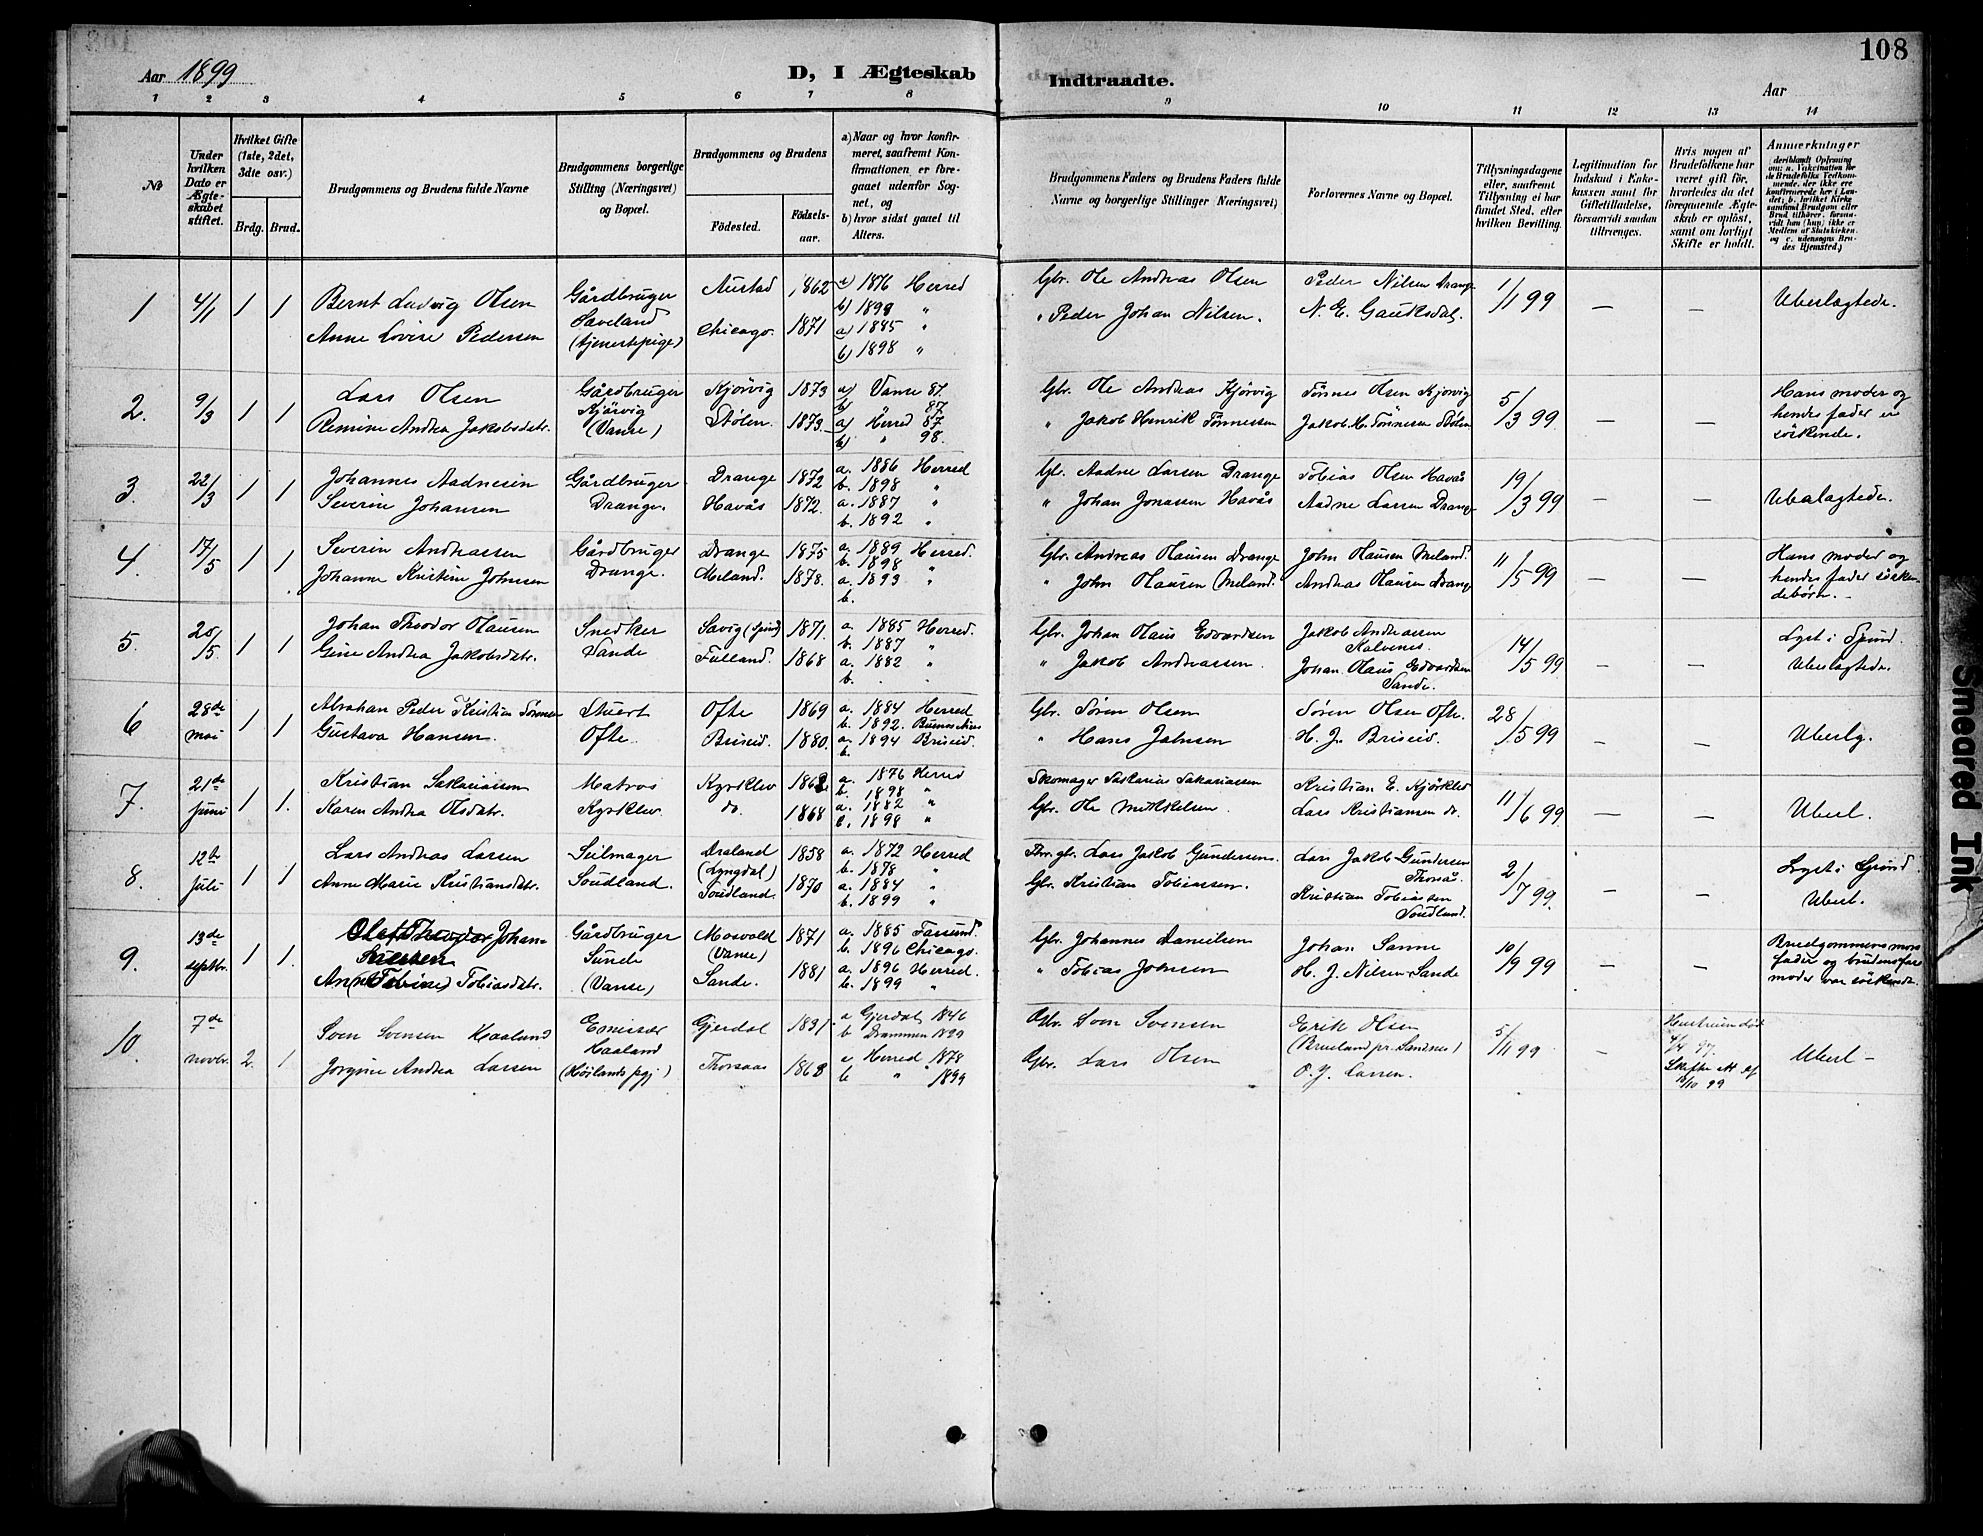 108
Aar 1899
D, I Ægteskab
Indtraadte.
Aar
1 2 3 4 5 6 7 8 9 10 11 12 13 14
№
Under hvilken Dato er Ægteskabet stiftet.
Hvilket Gifte (1ste, 2det, 3die osv.)
Brdg. Brud.
Brudgommens og Brudens fulde Navne
Brudgommens borgerlige Stilling (Næringsvei) og Bopæl.
Brudgommens og Brudens
Fødested.
Fødselsaar.
a) Naar og hvor konfirmeret, saafremt Konfirmationen er foregaaet udenfor Sognet, og
b) hvor sidst gaaet til Alters.
Brudgommens Faders og Brudens Faders fulde Navne og borgerlige Stillinger (Næringsvei)
Forlovernes Navne og Bopæl.
Tillysningsdagene eller, saafremt Tillysning ei har fundet Sted, efter hvilken Bevilling.
Legitimation for Indskud i Enkekassen samt for Giftetilladelse, forsaavidt saadan tiltrænges.
Hvis nogen af Brudefolkene har været gift før, hvorledes da det foregaaende Ægteskab er opløst, samt om lovligt Skifte er holdt.
Anmærkninger
1 4/1 1 1 Bernt Ludvig Olsen Gårdbruger Saveland Austad 1862 a) 1876 Herred b) 1898 " Gbr. Ole Andreas Olsen Peder Nilsen Drange 1/1 99 — — Ubeslægtede.
Anne Lovise Pedersen (tjenestepige) Chicago. 1871 a) 1885 " b) 1898 " " Peder Johan Nilsen. N. E. Gauksdal.
2. 9/3 1 1 Lars Olsen Gårdbruger Kjörvig (Vanse) Kjörvig 1873 a) Vanse 87. b) 87 Gbr. Ole Andreas Kjörvig Tönnes Olsen Kjörvig 5/3 99 — — Hans moder og hendes fader er söskende.
Remine Andrea Jakobsdatr. Stölen. 1873. a) Herred 87 b) " 98. " Jakob Henrik Tönnessen Jakob H. Tönnesen Stölen
3. 22/3 1 1 Johannes Aadnesen Gårdbruger Drange. Drange 1872 a. 1886 Herred b. 1898 " Gb. Aadne Larsen Drange Tobias Olsen Havås 19/3 99 — — Ubeslægtede.
Severine Johansen Havås 1872. a. 1887 " b. 1892 " " Johan Jonassen Havås Aadne Larsen Drange
4. 17/5 1 1 Severin Andreassen Gårdbruger Drange. Drange 1875 a. 1889 Herred. b. 1898 " Gbr. Andreas Olausen Drange John Olausen Meland. 11/5 99 — — Hans moder og hendes fader söskendebörn. -
Johanne Kristine Johnsen Meland. 1878. a. 1893 " b. " John Olausen Meland. Andreas Olausen Drange
5. 20/5. 1 1 Johan Theodor Olausen Snedker Sande Savig (Spind) 1871. a. 1885 Herred. b. 1887 " Gbr. Johan Olaus Edvardsen Jakob Andreassen Kalvenes. 14/5 99 — — Lyst i Spind. Ubeslægtede.
Gine Andrea Jakobsdatr. Fulland. 1868 a. 1882 " b. " " Jakob Andreassen. Johan Olaus Edvardsen Sande.
6 28de mai 1 1 Abraham Peder Kristian Sörensen Stuert Ofte. Ofte 1869 a. 1884 Herred b. 1892. Buenos Aires Gbr. Sören Olsen Sören Olsen Ofte. 28/5 99 — — Ubeslg.
Gustava Hansen. Briseid. 1880. a. 1894 Briseid. b. " Hans Johnsen H. J. Briseid.
7. 21de Juni 1 1. Kristian Sakariassen Matros Kyrklev. Kyrklev a. 1876 Herred b. 1898 " Skomager Sakarias Sakariassen Kristian E. Kjörklev 11/6 99 — — Ubesl.
Karen Andrea Olsdatr. do. 1868 a. 1882 " b. 1898 " Gbr. Ole Mikkelsen. Lars Kristiansen do.
8. 12te Juli 1 1 Lars Andreas Larsen Seilmager Soudland. Draland (Lyngdal) 1858 a. 1872 Herred b. 1878 " Lars Jakob Gundersen. Lars Jakob Gundersen Thorsås. 2/7 99. — — Lyst i Spind. Ubesl.
Anne Marie Kristiansdatr. Soudland. 1870 a. 1884 " b. 1899 " Gbr. Kristian Tobiassen. Kristian Tobiassen Soudland.
9. 13de septbr. 1 1. Johan Gårdbruger Sunde (Vanse) Mosvold (Vanse) 1871 a. 1885 Farsund. b. 1896 Chicago. Gbr. Johannes Danielsen Johan Sanne 10/9 99 — — Brudgommens morfader og brudens farmoder var söskende.
Anne (Tobine) Tobiasdatr. Sande. 1881 a. 1896 Herred. b. 1899 " " Tobias Johnsen H. J. Nilsen Sande
10. 7de novbr. 2. 1 Sven Svensen Haaland Emissær Haaland (Höilands pgj) Gjerdal 1831. a Gjerdal 1846 b Drammen 1899 Gbr. Sven Svensen Erik Olsen (Brueland pr. Sandnes) 5/11 99 — Hustruen död 4/4 97. Skifte att af 10/10 99 Ubesl -
Jorgine Andrea Larsen Thorsaas 1863 a Herred 1878 b " 1899 Gbr. Lars Olsen O. J. Larsen.
Smeared Ink